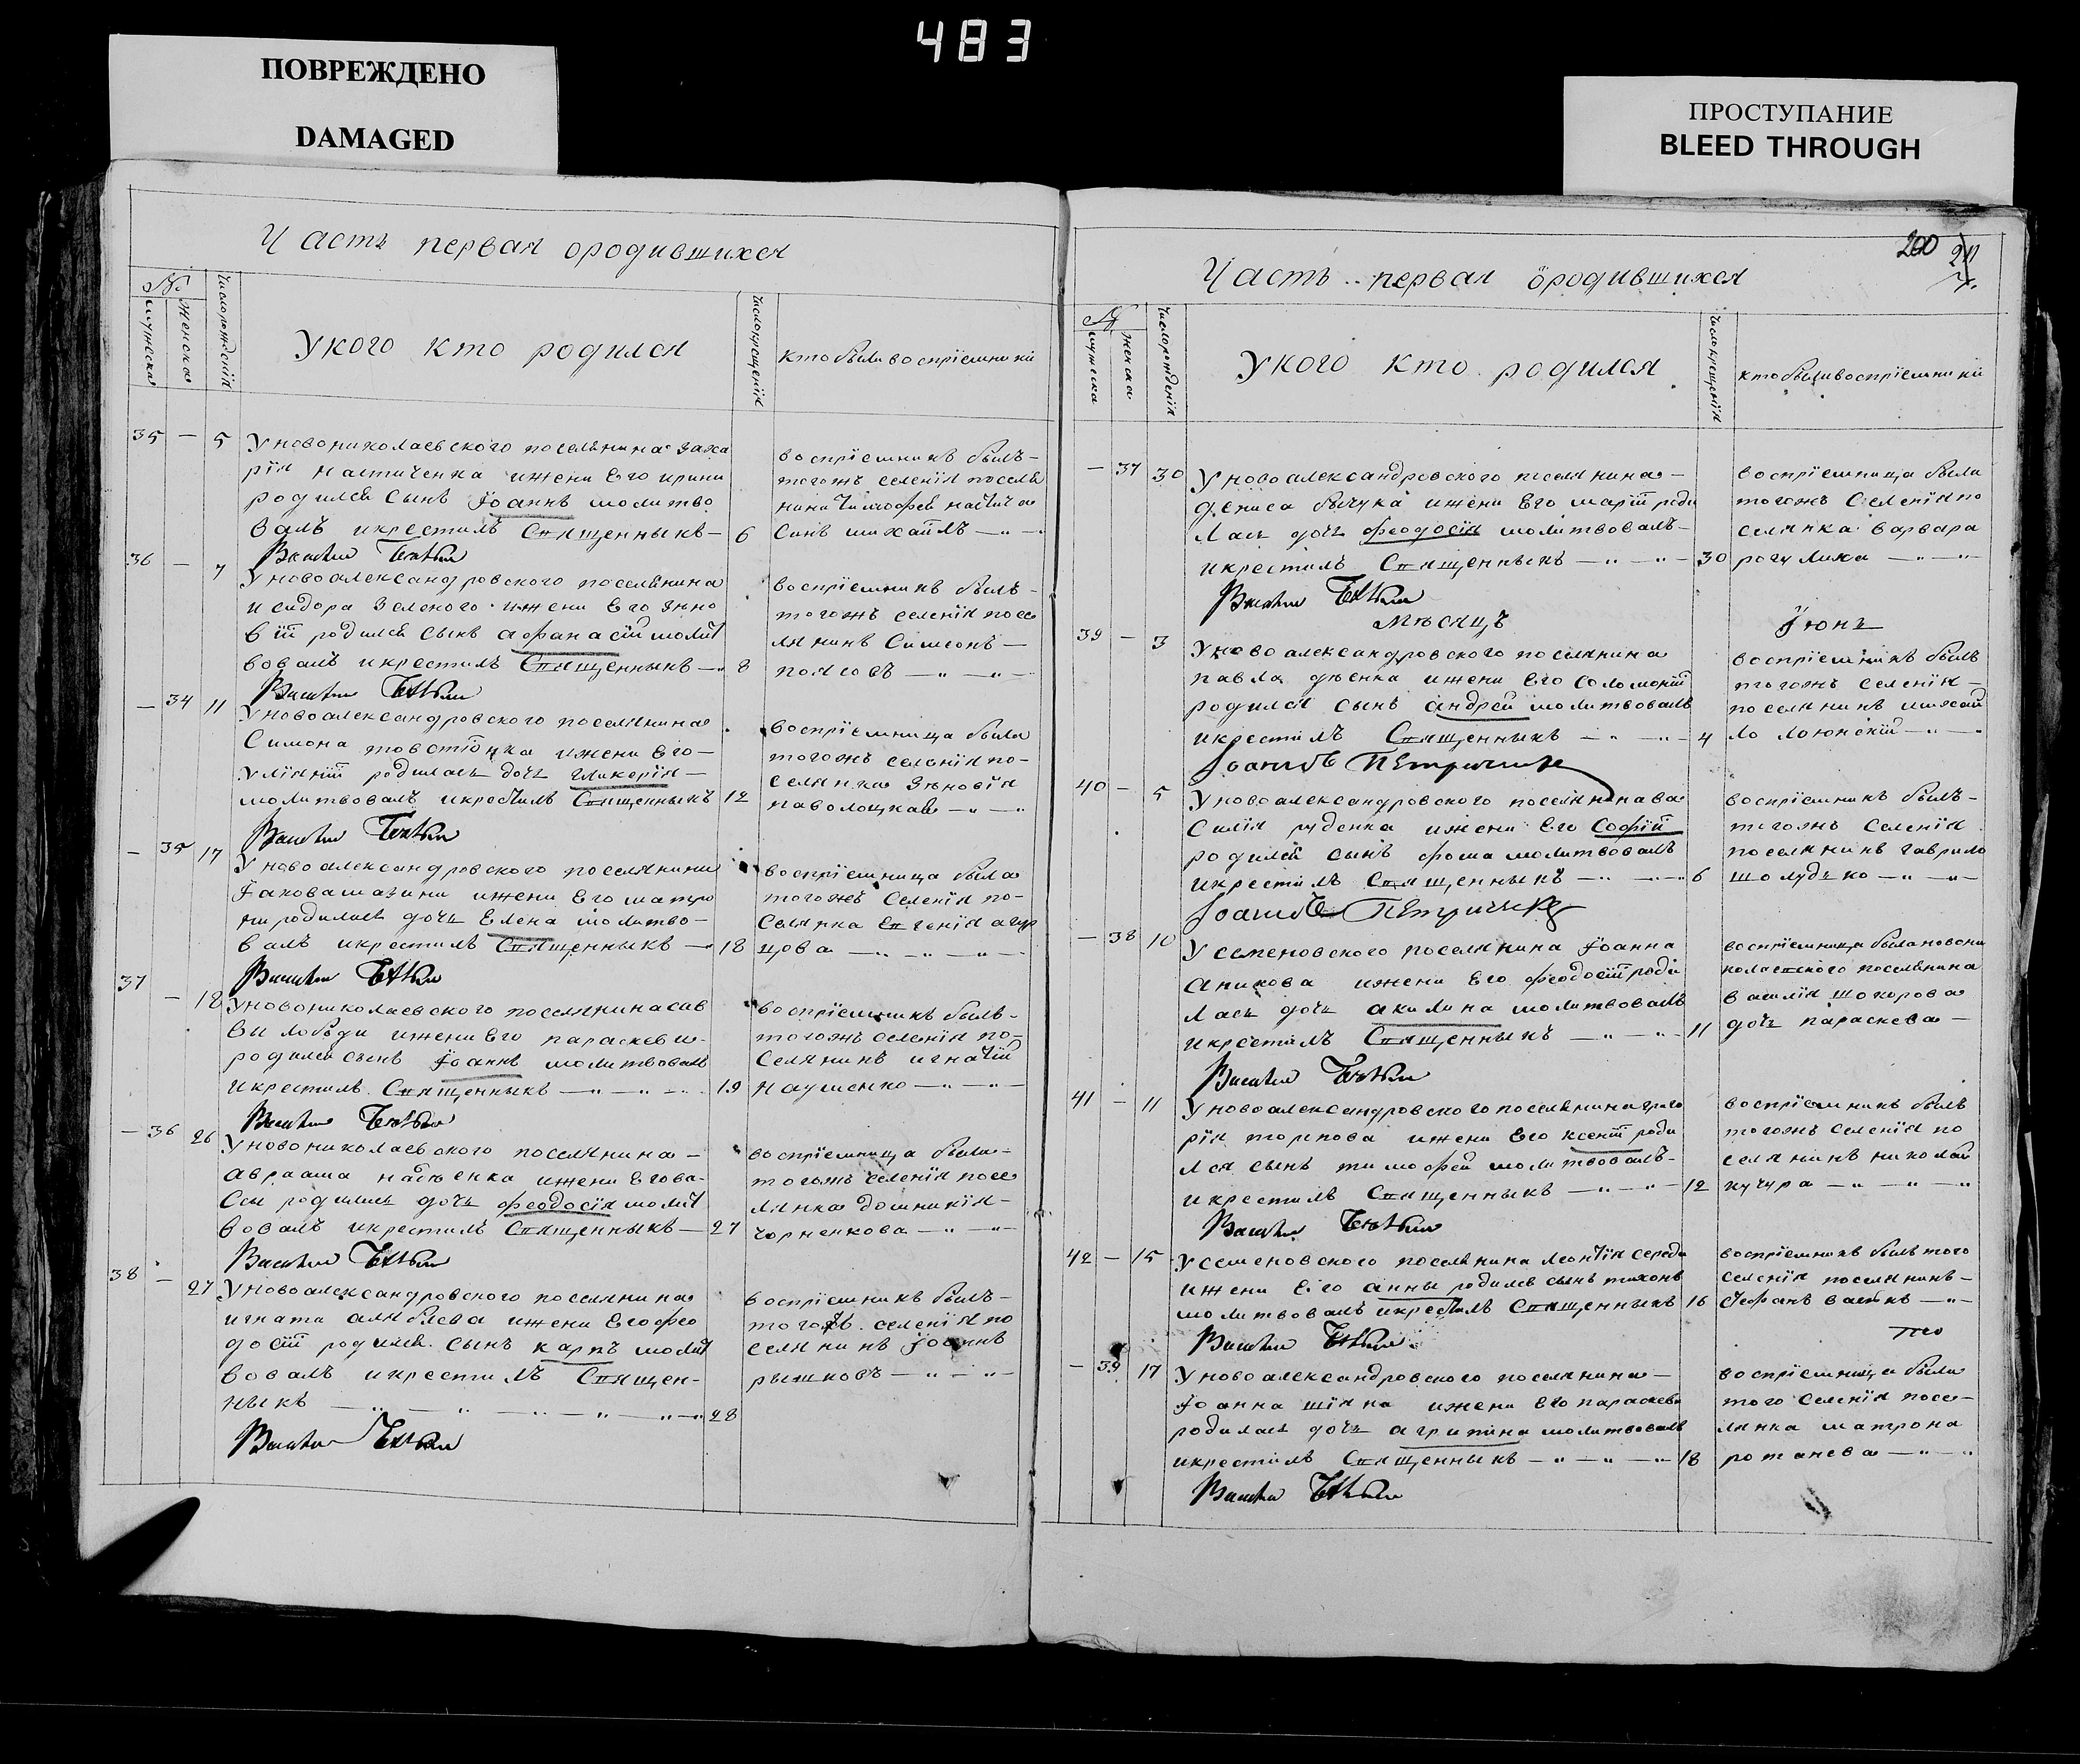 483
ПОВРЕЖДЕНО
DAMAGED
ПРОСТУПАНИЕ
BLEED THROUGH
Часть первая ородившихся
№
мужеска
женска
число рождения
У кого кто родился
число крещенїя
кто были воспрїемники
35 — 5 У новониколаевского поселянина Заха
рїя Настиченка и жени Его ирини
родился Сынъ Іоаннъ молитво
валъ и крестилъ Священныкъ — 6
воспрїемникъ былъ —
тогожъ селенїя поселя
нина Тимофея
Синъ михаилъ — „ —
36 — 7 У новоалександровского поселянина
исидора Зеленого и жени Его Зино
вїи родился Сынъ афанасїй молит
вовалъ и крестилъ Священныкъ — „ 8
воспрїемникъ былъ —
тогожъ селенїя посе
лянинъ Симеонъ —
поясовъ — „ — „ —
— 34 11 У новоалександровского поселянина
Симона товстїика и жени Его —
Улїянїи родилась дочь гликерїя —
молитвовалъ и крестилъ Священныкъ 12
воспрїемница была
тогожъ селенїя по-
селянка Зѣновїя
наволоцкая — „ — „
— 35 17 У новоалександровского поселянина
Іакова мазини и жени Его матро
ни родилась дочь Елена молитво-
валъ и крестилъ Священныкъ — „ 18
воспрїемница была
тогожъ Селенїя по-
Селянка Евгенїя агур
цова — „ — „ — „ —
37 — 18 У новониколаевского поселянина Сав
ви лобѣди и жени Его параскеви-
родился сынъ Іоаннъ молитвовалъ
и крестилъ Священныкъ — „ — „ — „ 19
воспрїемникъ былъ-
тогожъ селенїя по-
Селянинъ игнатїй
Науменко — „ — „ —
— 36 26 У новониколаевского поселянина —
Авраама и жени Его ва-
Сси родилась дочь феодосїя молит
вовалъ и крестилъ Священныкъ — 27
воспрїемница была-
тогожъ селенїя посе
лянка домникїя-
чорненкова — „ — „ —
38 — 27 У новоалександровского поселянина
игната и жени Его фео
досїи родился сынъ карпъ молит
вовалъ и крестилъ Священ-
ныкъ — „ — „ — „ — „ — „ 28
воспрїемникъ былъ-
тогожъ селенїя по
селянинъ Іоаннъ
рышковъ — „ — „ —
200
Часть первая ородившихся
№
мужеска
женска
число рожденїя
У кого кто родился
число крещенїя
кто были воспрїемники
— 37 30 У новоалександровского поселянина —
дениса бычука и жени Его марїи роди
лась дочь феодосїя молитвовалъ-
и крестилъ Священныкъ — „ — „ — 30
воспрїемница была
тогожъ Селенїя по
селянка варвара
рогулина — „ — „
Мѣсяцъ Іюнь
39 — 3 У новоалександровского поселянина
павла и жени Его Соломонїи
родился сынъ андрей молитвовалъ
и крестилъ Священныкъ — „ — „ — 4
воспрїемникъ былъ
тогожъ селенїя —
поселянинъ михай
ло — „ — „
40 — 5 У новоалександровского поселянина ва
силїя руденка и жени Его Софїи
родился сынъ фома молитвовалъ
и крестилъ Священныкъ — „ — „ 6
воспрїемникъ былъ-
тогожъ селенїя
поселянинъ гаврило
шолудько — „ — „ —
— 38 10 У семеновского поселянина Іоанна
аникова и жени Его феодосїи роди
лась дочь акилина молитвовалъ
и крестилъ Священныкъ — „ — „ — 11
воспрїемница была новони
колаевского поселянина
василїя шокорова
дочь параскева —
41 — 11 У новоалександровского поселянина григо
рїя торпова и жени Его ксенїи роди
лся сынъ тимофей молитвовалъ-
и крестилъ Священныкъ — „ — „ — 12
воспрїемникъ былъ
тогожъ селенїя по
селянинъ николай
кучура — „ — „ — „
42 — 15 У семеновского поселянина леонтїя середи
и жени Его анны родился сынъ тихонъ
молитвовалъ и крестилъ Священныкъ 16
воспрїемникъ былъ того
селенїя поселянинъ —
Стефанъ — „ —
— 39 17 У новоалександровского поселянина —
Іоанна шїяна и жени Его параскеви
родилась дочь агрипина молитвовалъ
и крестилъ Священныкъ — „ — „ — „ 18
воспрїемница была
того селенїя посе-
лянка матрона
ротанева — „ — „